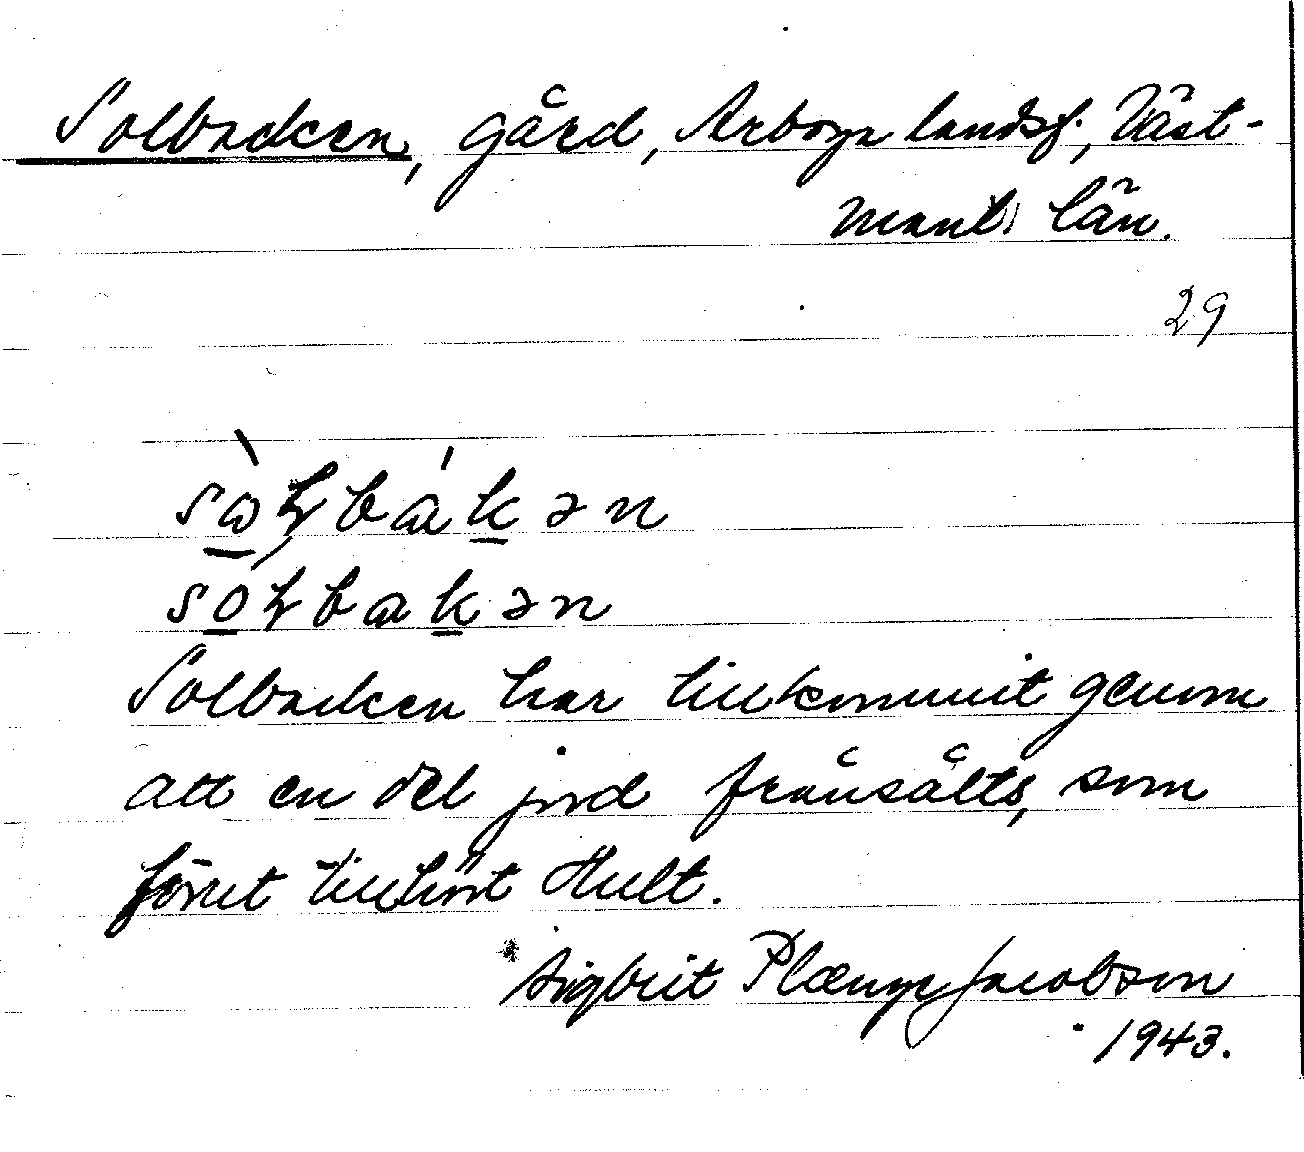 Solbacken, gård, Arboga landsf., Väst-
manl. län.
29
sὼɫbákən
sóɫbakən
Solbacken har tillkommit genom
att en del jord frånsålts, som
förut tillhört Hult.
Sigbrit Plænge Jacobson
1943.